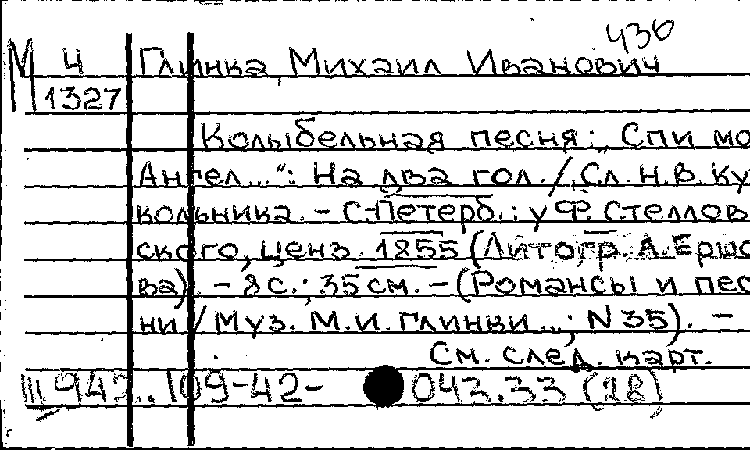 436
М 4 Глинка, Михаил Иванович
1327
Колыбельная песня: „Спи мо
Ангел...": На два гол. / Сл. Н.В. Ку
кольника. - С.-Петерб.: у Ф. Стеллов
ского, ценз. 1855 (Литогр. А. Ершо
ва). - 8 с.; 35 см. - (Романсы и пес
ни / Муз. М.И. Глинки...; N 35). -
См. след. карт.
III 942.. 109-42- 043.33 (28)